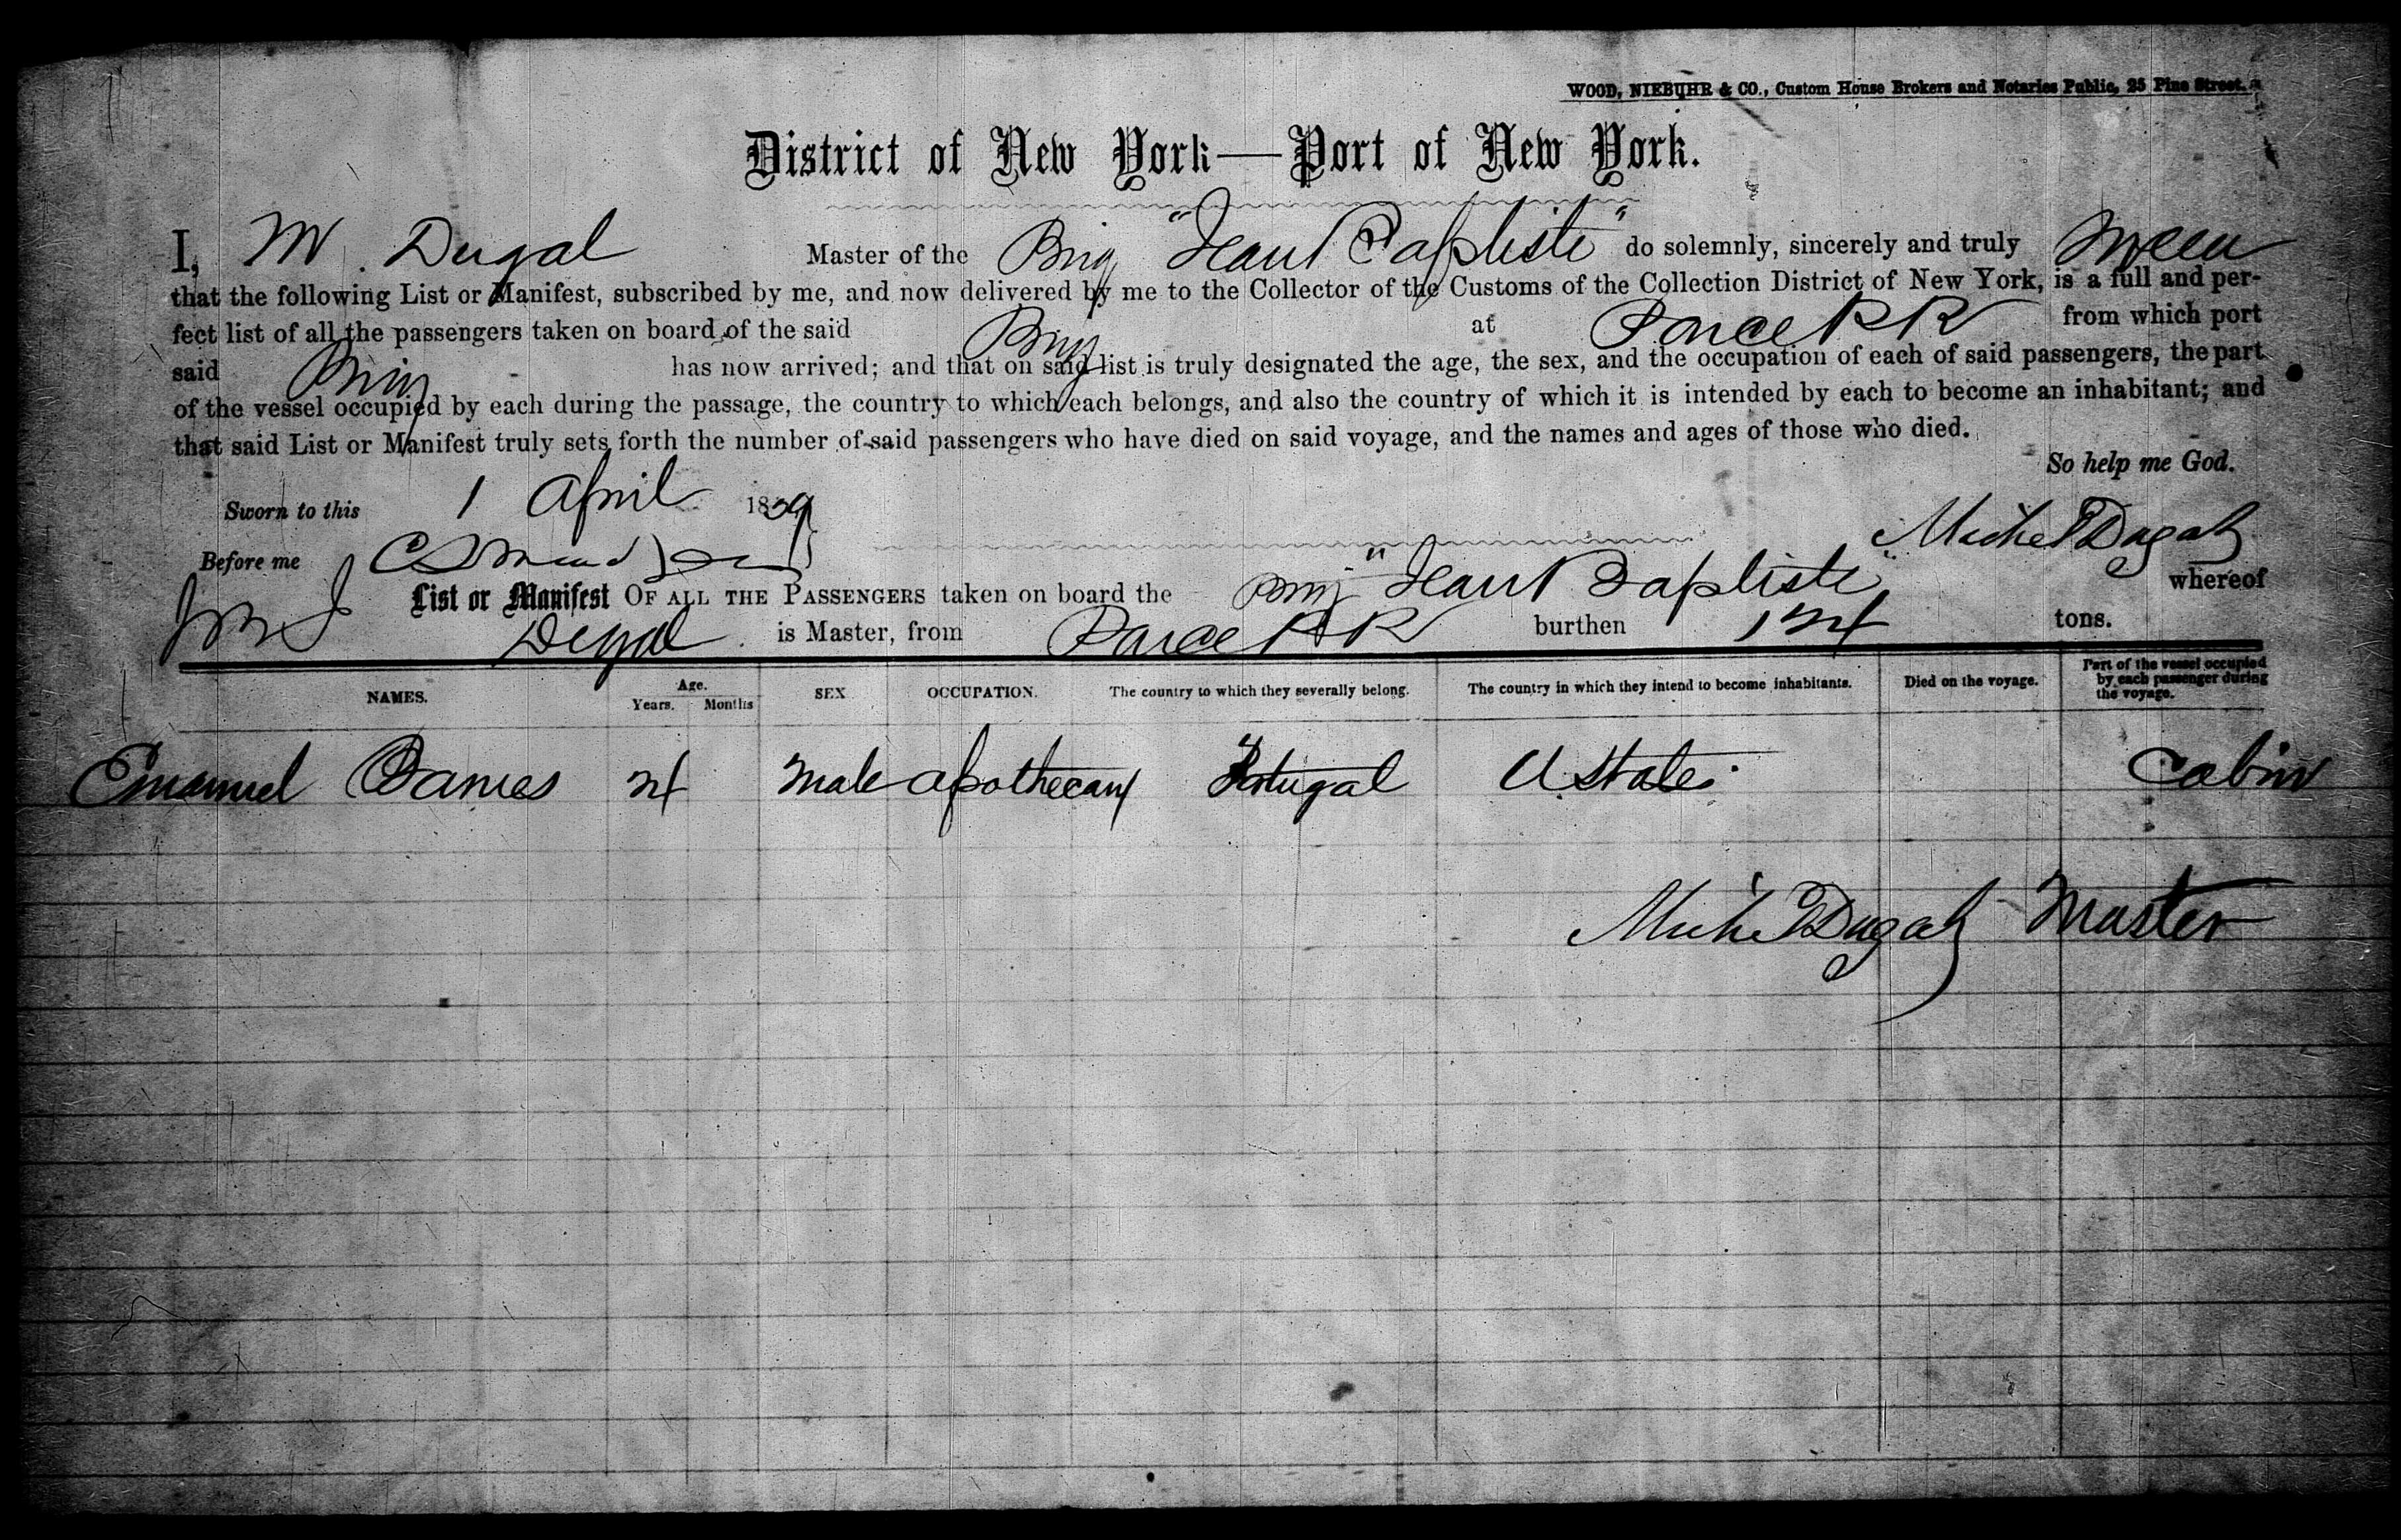 WOOD, NIEBUHR & CO., Custom House Brokers and Notaries Public, 25 Pine Street.
District of New York—Port of New York.
I, M. Dugal Master of the Brig "Jean Baptiste" do solemnly, sincerely and truly swear
that the following List or Manifest, subscribed by me, and now delivered by me to the Collector of the Customs of the Collection District of New York, is a full and per-
fect list of all the passengers taken on board of the said Brig at Ponce P R from which port
said Brig has now arrived; and that on said list is truly designated the age, the sex, and the occupation of each of said passengers, the part
of the vessel occupied by each during the passage, the country to which each belongs, and also the country of which it is intended by each to become an inhabitant; and
that said List or Manifest truly sets forth the number of said passengers who have died on said voyage, and the names and ages of those who died.
So help me God.
Sworn to this 1 April 1859
Before me Michel Dugal
List or Manifest OF ALL THE PASSENGERS taken on board the Brig "Jean Baptiste" whereof
Dugal is Master, from Ponce P R burthen tons.
NAMES. Age. Years. Months SEX OCCUPATION. The country to which they severally belong. The country in which they intend to become inhabitants. Died on the voyage. Part of the vessel occupied by each passenger during the voyage.
Emanuel 24 Male apothecary Portugal U States Cabin
Michel Dugal Master